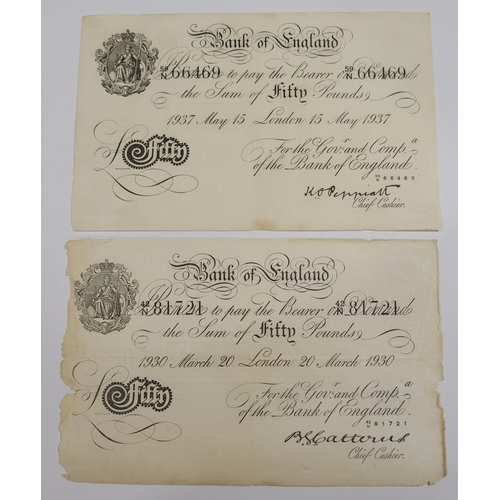 Bank of England
59/N 66469 to pay the Bearer on Demand 59/N 66469
the Sum of Fifty Pounds
1937 May 15 London 15 May 1937
For the Govr. and Compa.
of the Bank of England.
£ Fifty
59/N 66469
K.O. Peppiatt
Chief Cashier.
Bank of England
42/N 81721 to pay the Bearer on Demand 42/N 81721
the Sum of Fifty Pounds
1930 March 20 London 20 March 1930
For the Govr. and Compa.
of the Bank of England.
£ Fifty
42/N 81721
B.G. Catterns
Chief Cashier.